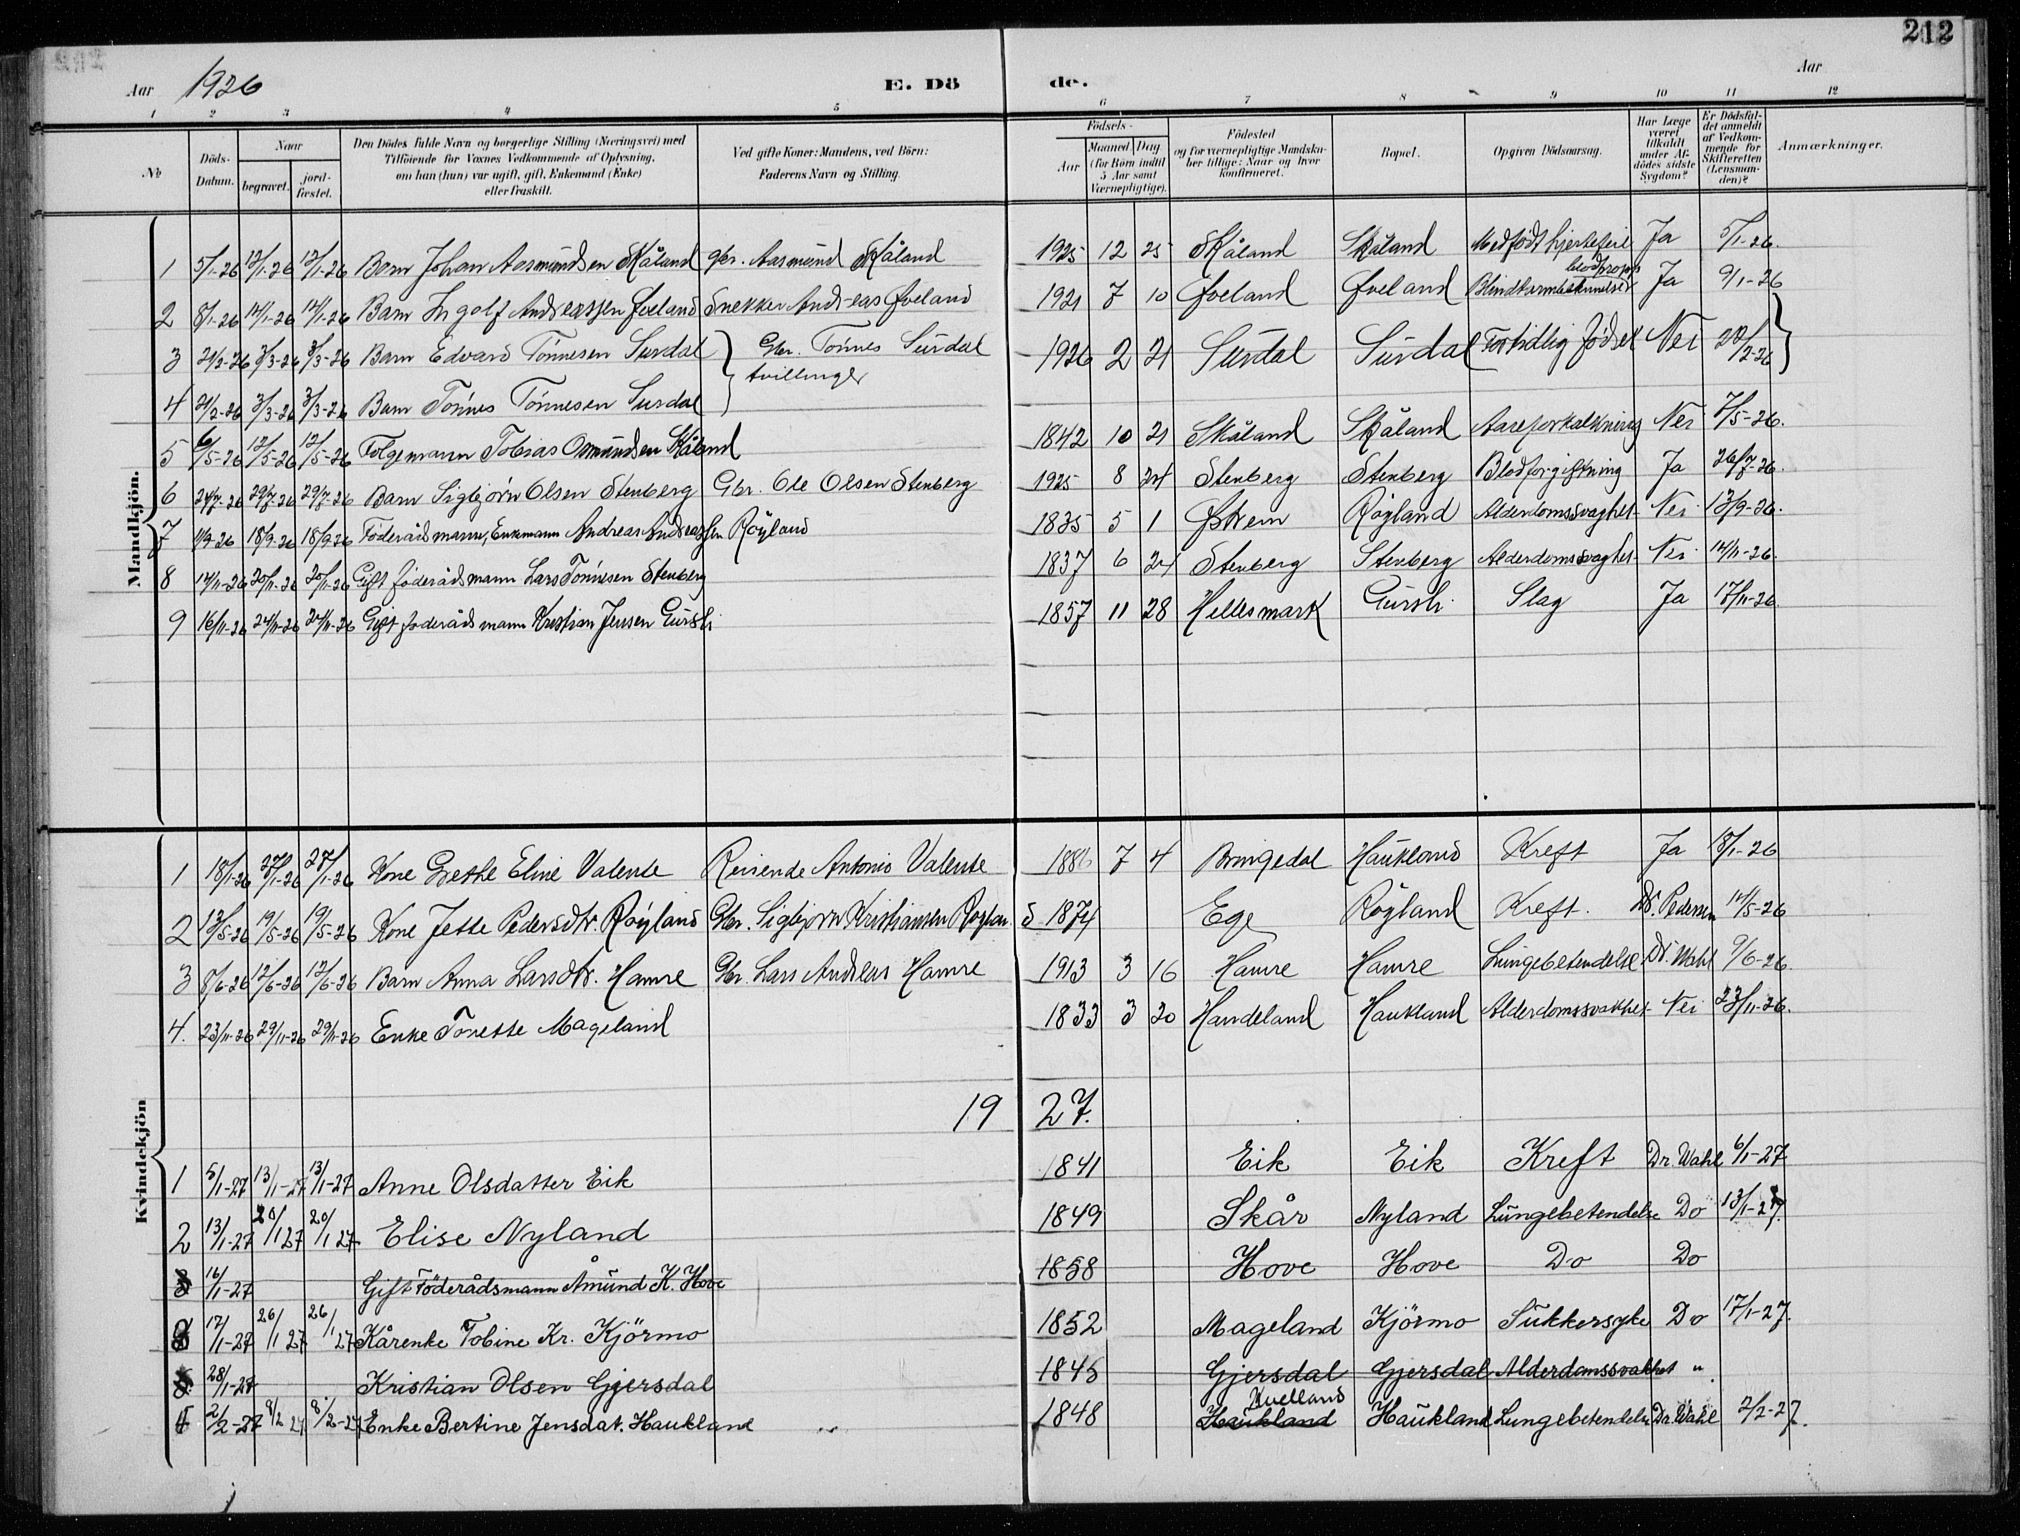 212
Aar 1926 E. Dö de. Aar
1 2 3 4 5 6 7 8 9 10 11 12
No
Döds-Datum.
Naar
begravet.
jord-fæstet.
Den Dödes fulde Navn og borgerlige Stilling (Næringsvei) med
Tilföiende for Voxnes Vedkommende af Oplysning,
om han (hun) var ugift, gift, Enkemand (Enke)
eller fraskilt.
Ved gifte Koner: Mandens, ved Börn:
Faderens Navn og Stilling.
Födsels-
Aar
Maaned Dag
(for Börn indtil
5 Aar samt
Værnepligtige).
Födested
og for værnepligtige Mandskaber tillige: Naar og hvor
konfirmeret.
Bopæl.
Opgiven Dödsaarsag.
Har Læge
været
tilkaldt
under Afdödes sidste
Sygdom?
Er Dödsfaldet anmeldt
af Vedkommende for
Skifteretten
(Lensmanden)?
Anmærkninger.
Mandkjön.
1 5/1-26 12/1-26 12/1-26 Barn Johan Aasmundsen Skåland Gbr. Aasmund Skåland 1925 12 25 Skåland Skåland Medfødt hjertefeil Ja 5/1-26.
2 8/1-26 14/1-26 14/1-26 Barn Ingolf Andreassen Øveland Snekker Andreas Øveland 1921 7 10 Øveland Øveland Blindtarmbetennelse blodpropp Ja 9/1-26
3 21/2-26 3/3-26 3/3-26 Barn Edvard Tönnesen Surdal Gbr. Tönnes Surdal 1926 2 21 Surdal Surdal Fortidlig fødsel Nei 28/2-26
tvillinger
4 21/2-26 3/3-26 3/3-26 Barn Tönnes Tönnesen Surdal
5 6/5-26 12/5-26 12/5-26 Folgemann Tobias Osmundsen Skåland 1842 10 21 Skåland Skåland Aareforkalkning Nei 7/5-26.
6 24/7-26 29/7-26 29/7-26 Barn Sigbjörn Olsen Stenberg Gbr. Ole Olsen Stenberg 1925 8 24 Stenberg Stenberg Blodforgiftning Ja 26/7-26.
7 11/9-26 18/9-26 18/9-26 Föderådsmann, Enkmann Andreas Andreassen Röyland 1835 5 1 Østrem Röyland Alderdomssvaghet Nei 13/9-26.
8 14/11-26 20/11-26 20/11-26 Gift föderådsmann Lars Tönnesen Stenberg 1837 6 24 Stenberg Stenberg Alderdomssvaghet Nei 14/11-26.
9 16/11-26 24/11-26 24/11-26 Gift föderådsmann Kristian Jensen Gursli 1857 11 28 Hellesmark Gursli Slag Ja 17/11-26.
Kvindekjön
1 18/1-26 27/1-26 27/1-26 Kone Grethe Eline Valente Reisende Antonio Valente 1886 7 4 Bringedal Haukland Kreft Ja 18/1-26
2 13/5-26 19/5-26 19/5-26 Kone Jette Pedersdtr. Röyland Gbr. Sigbjörn Kristiansen Royland 1874 Ege Röyland Kreft. Dr. Pedersen 14/5-26
3 8/6-26 12/6-26 12/6-26 Barn Anna Larsdtr. Hamre Gbr. Lars Andreas Hamre 1913 3 16 Hamre Hamre Lungebetendelse Dr. Wahl 9/6-26.
4. 23/11-26 29/11-26 29/11-26 Enke Tonette Mageland 1833 3 20 Handeland Haukland Alderdomssvakhet Nei 23/11-26.
19 27.
1 5/1-27 13/1-27 13/1-27 Anne Olsdatter Eik 1841 Eik Eik Kreft Dr. Wahl 6/1-27
2 13/1-27 20/1 27 20/1 27 Elise Nyland 1849 Skår Nyland Lungebetendelse Do 13/1-27.
3 16/1-27 Gift Föderådsmann Åmund K. Hove 1858 Hove Hove Do Do
17/1-27 26/1 27 26/1 27 Kårenke Tobine Kr. Kjörmo 1852 Mageland Kjörmo Sukkersyke Do 17/1-27.
5. 28/1-27 Kristian Olsen Gjersdal 1845 Gjersdal Gjersdal Alderdomssvakhet "
2/2-27 8/2 27 8/2-27 Enke Bertine Jensdat. Haukland 1848 Haukland Kvelland Haukland Lungebetendelse Dr. Wahl 2/2-27.